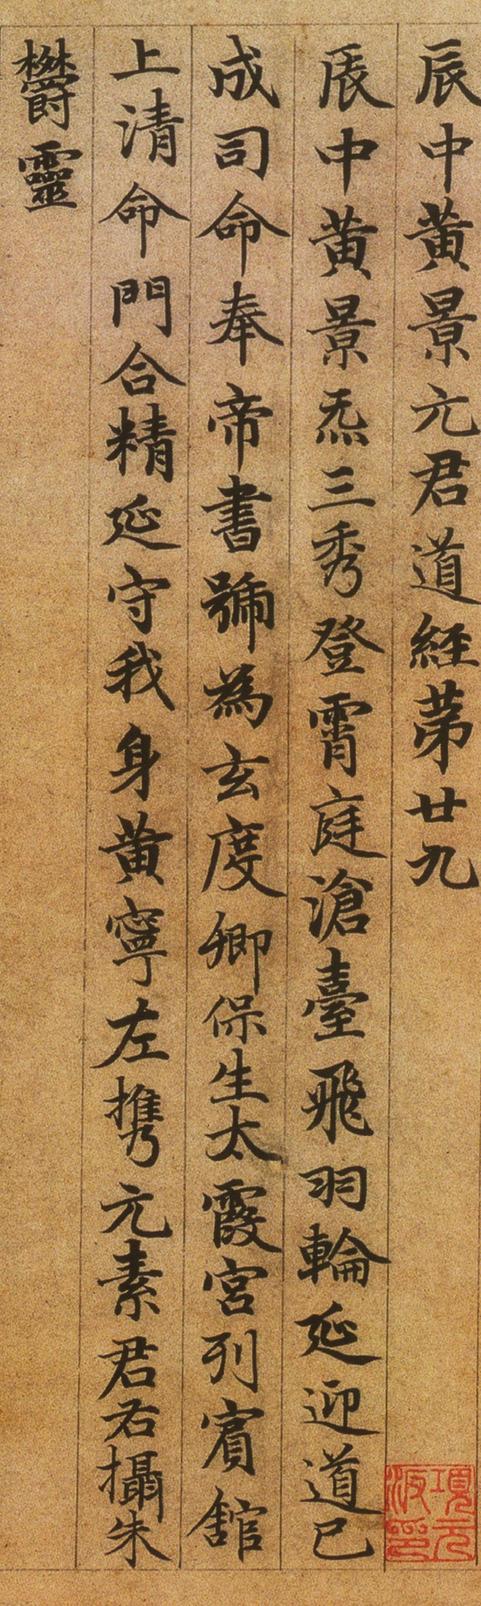 辰中黄景元君道經苐廿九
辰中黄景炁三秀登霄庭滄臺飛羽輪延迎道已
成司命奉帝書號為玄度卿保生太霞宮列賓舘
上清命門合精延守我身黄寧左攜元素君右攝朱
欝靈
項元汴印